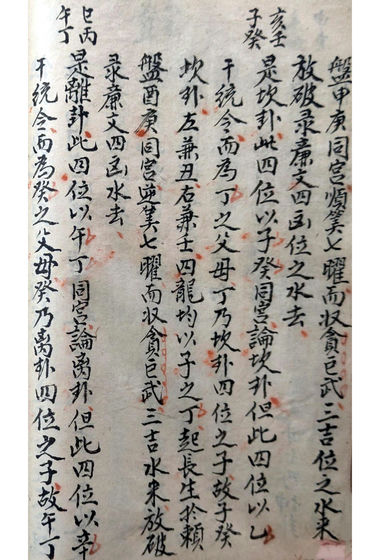 盤甲庚同宮順筭七曜而収貪巨武三吉位之水来
放破录亷文四凶位之水去
亥壬
子癸
是坎卦此四位以子癸同宮論坎卦但此四位以乙
干統令而為丁之父母丁乃坎卦四位之子故子癸
坎卦左兼丑右兼壬四龍均以子之丁起長生於頼
盤酉庚同宮逆筭七曜而収貪巨武三吉水来放破
录亷文四凶水去
巳丙
午丁
是離卦此四位以午丁同宮論离卦但此四位以辛
干統令而為癸之父母癸乃离卦四位之子故午丁